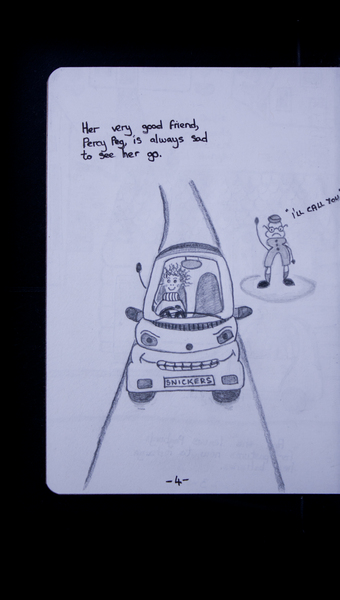 Her very good friend,
Percy Peg, is always sad
to see her go.
"I'LL CALL YOU"
SNICKERS
-4-